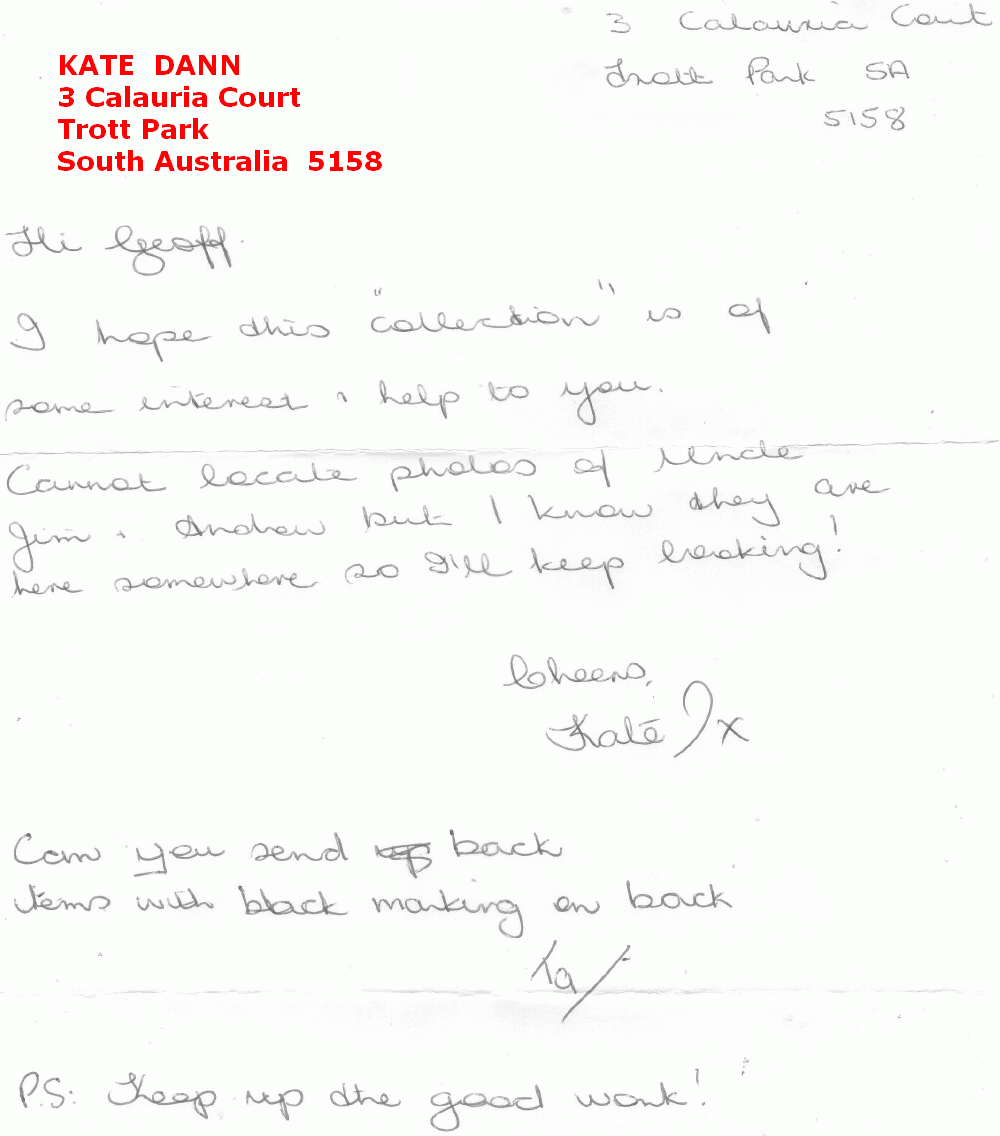 3 Calauria Court
Trott Park SA
5158
KATE DANN
3 Calauria Court
Trott Park
South Australia 5158
Hi Geoff.
I hope this "collection" is of
some interest & help to you.
Cannot locate photos of Uncle
Jim & Andrew but I know they are
here somewhere so I'll keep looking!
Cheers,
Kate x
Can you send back
items with black marking on back
Ta
P.S: Keep up the good work!